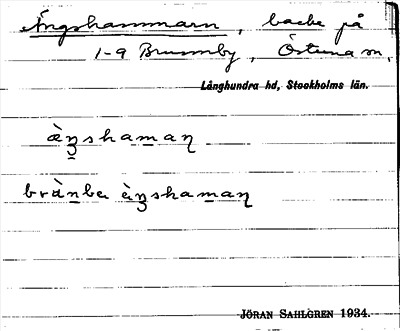 Ängshammarn, backe på
1-9 Brunnby, Östuna sn,
Långhundra hd, Stockholms län.
æ̀ŋshaman
brùnbe æ̀ŋshaman
JÖRAN SAHLGREN 1934.